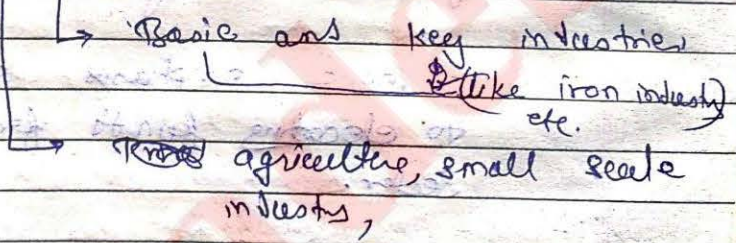 → Basic and key industries
(like iron industry
etc.)
→ agriculture, small scale
industry,